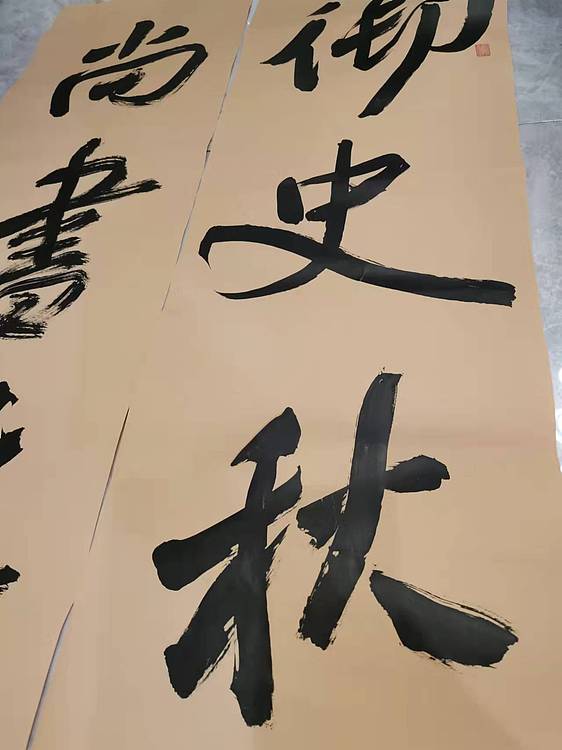 御史秋
尚書